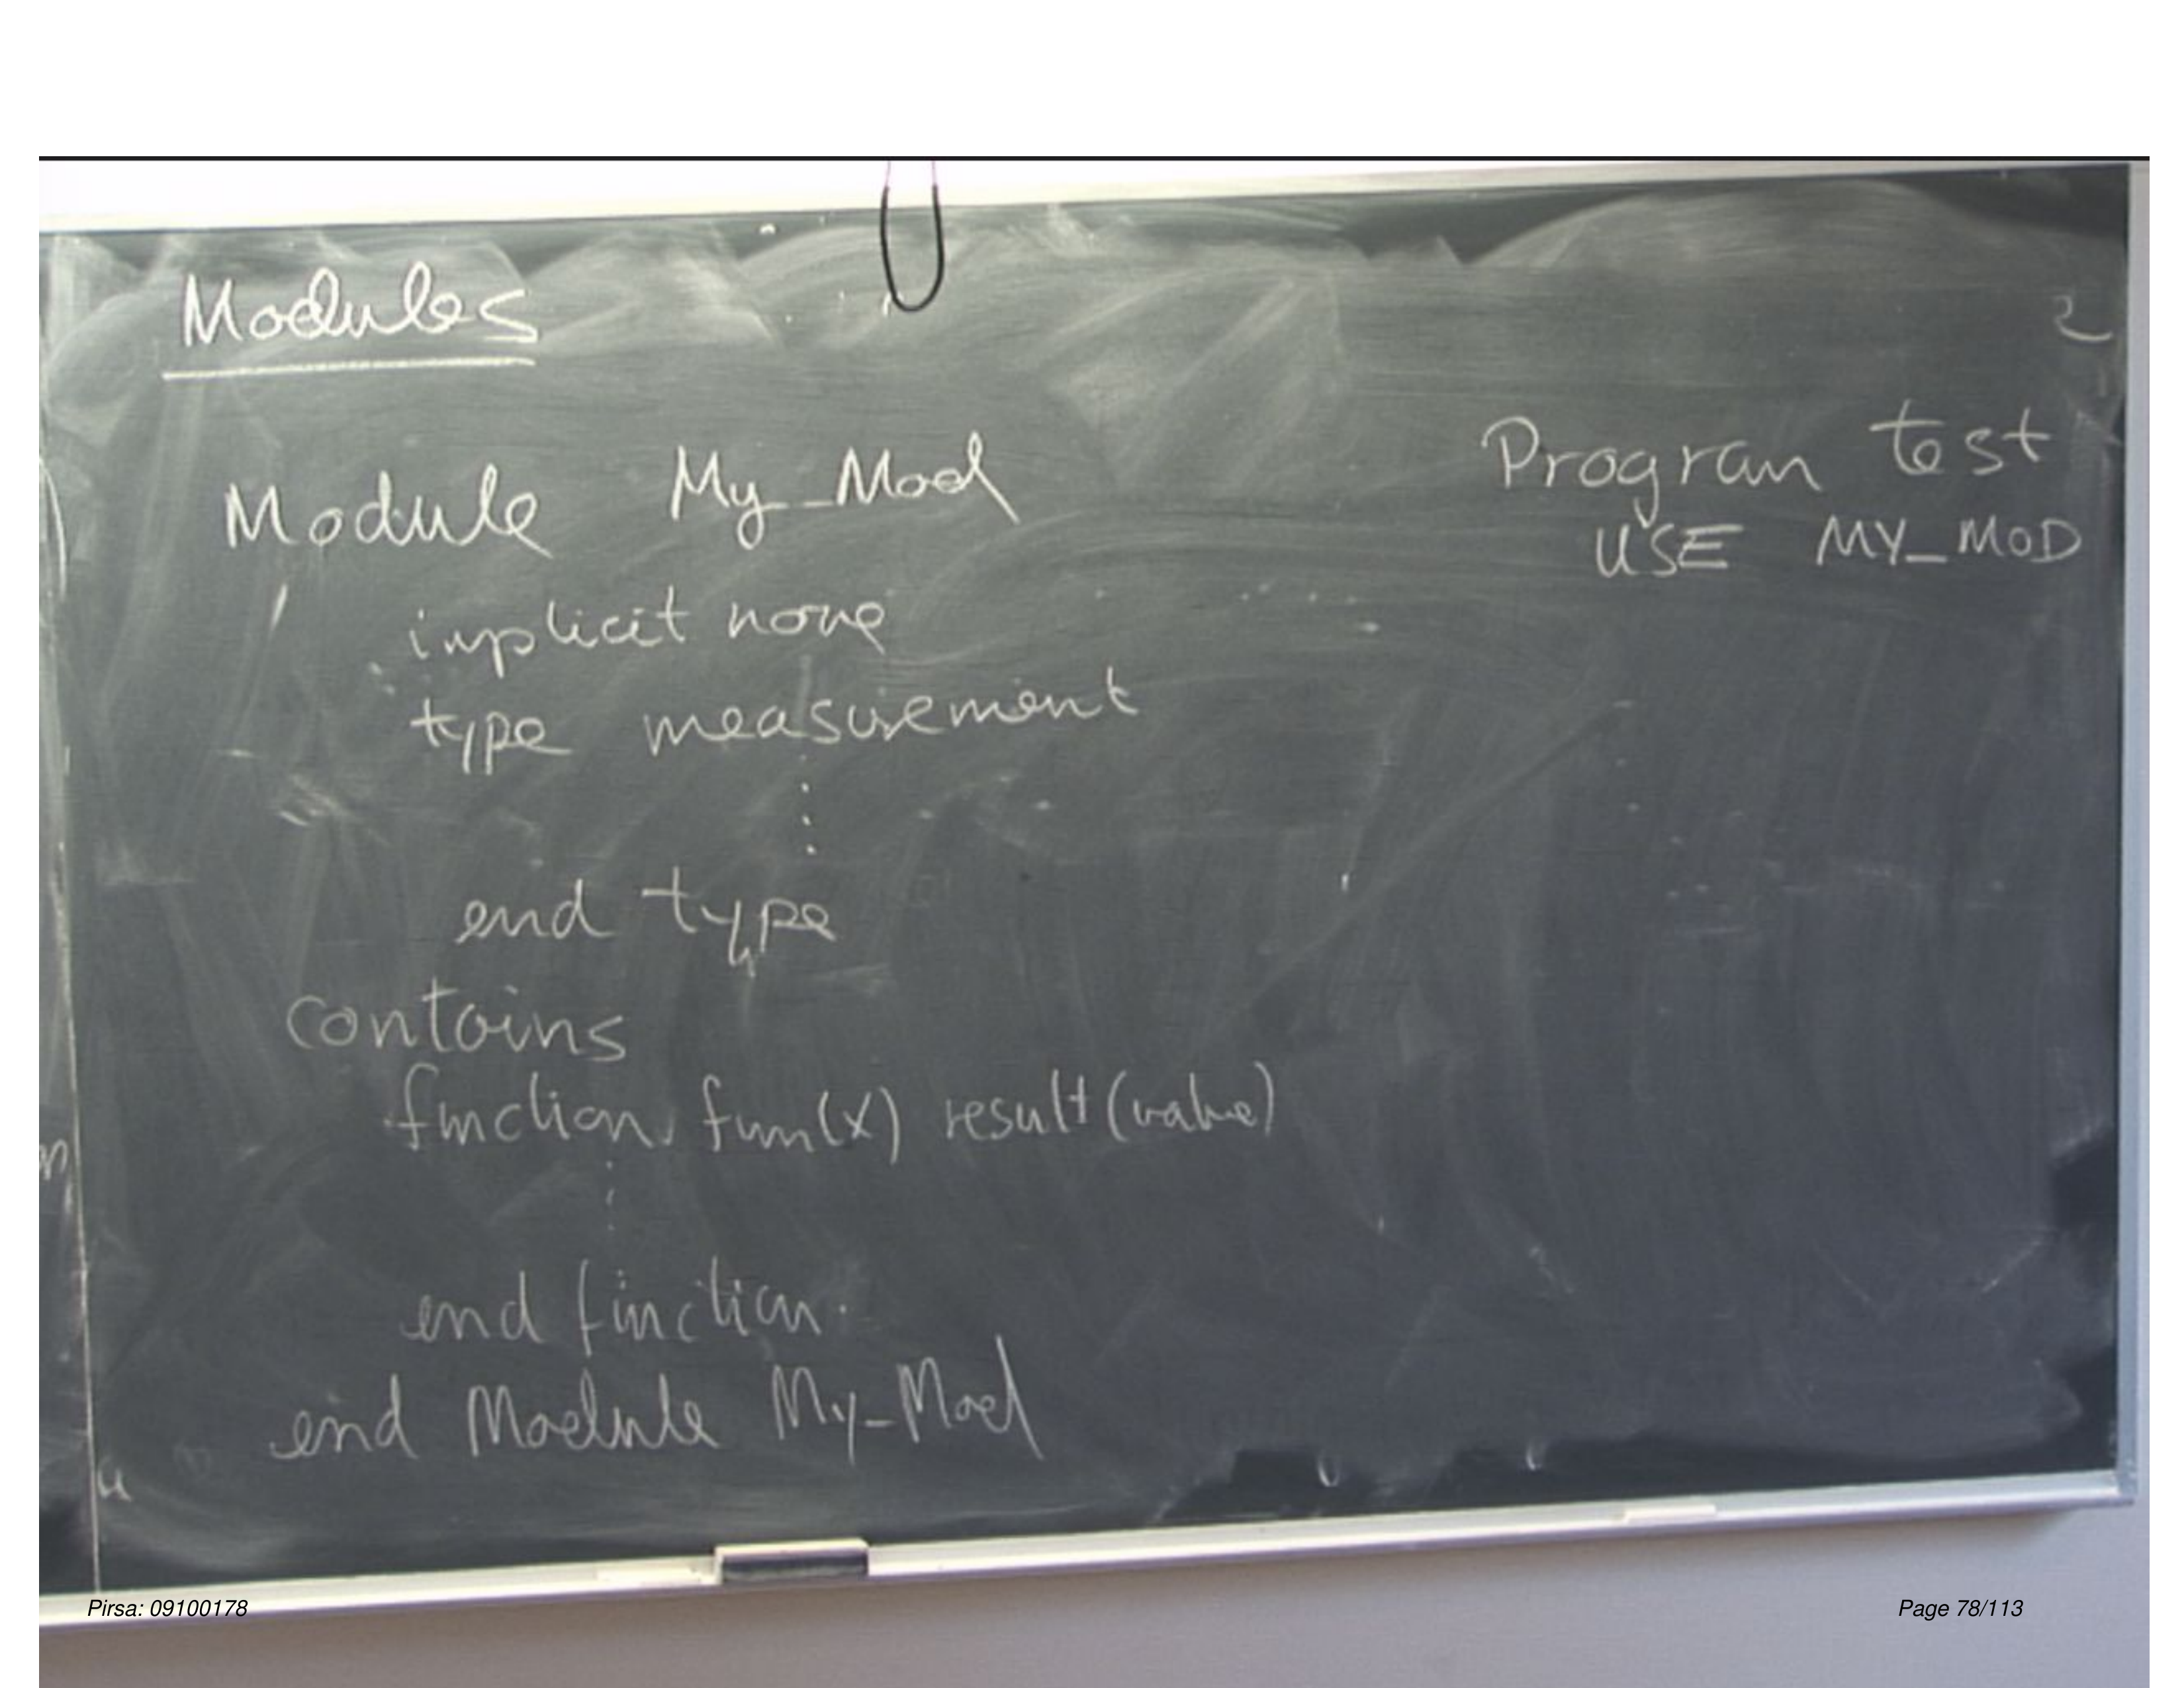 Modules
Module My_Mod
implicit none
type measurement
end type
contains
function fun(x) result(value)
end function.
end Module My_Mod
Program test
USE MY_MOD
2
Pirsa: 09100178
Page 78/113